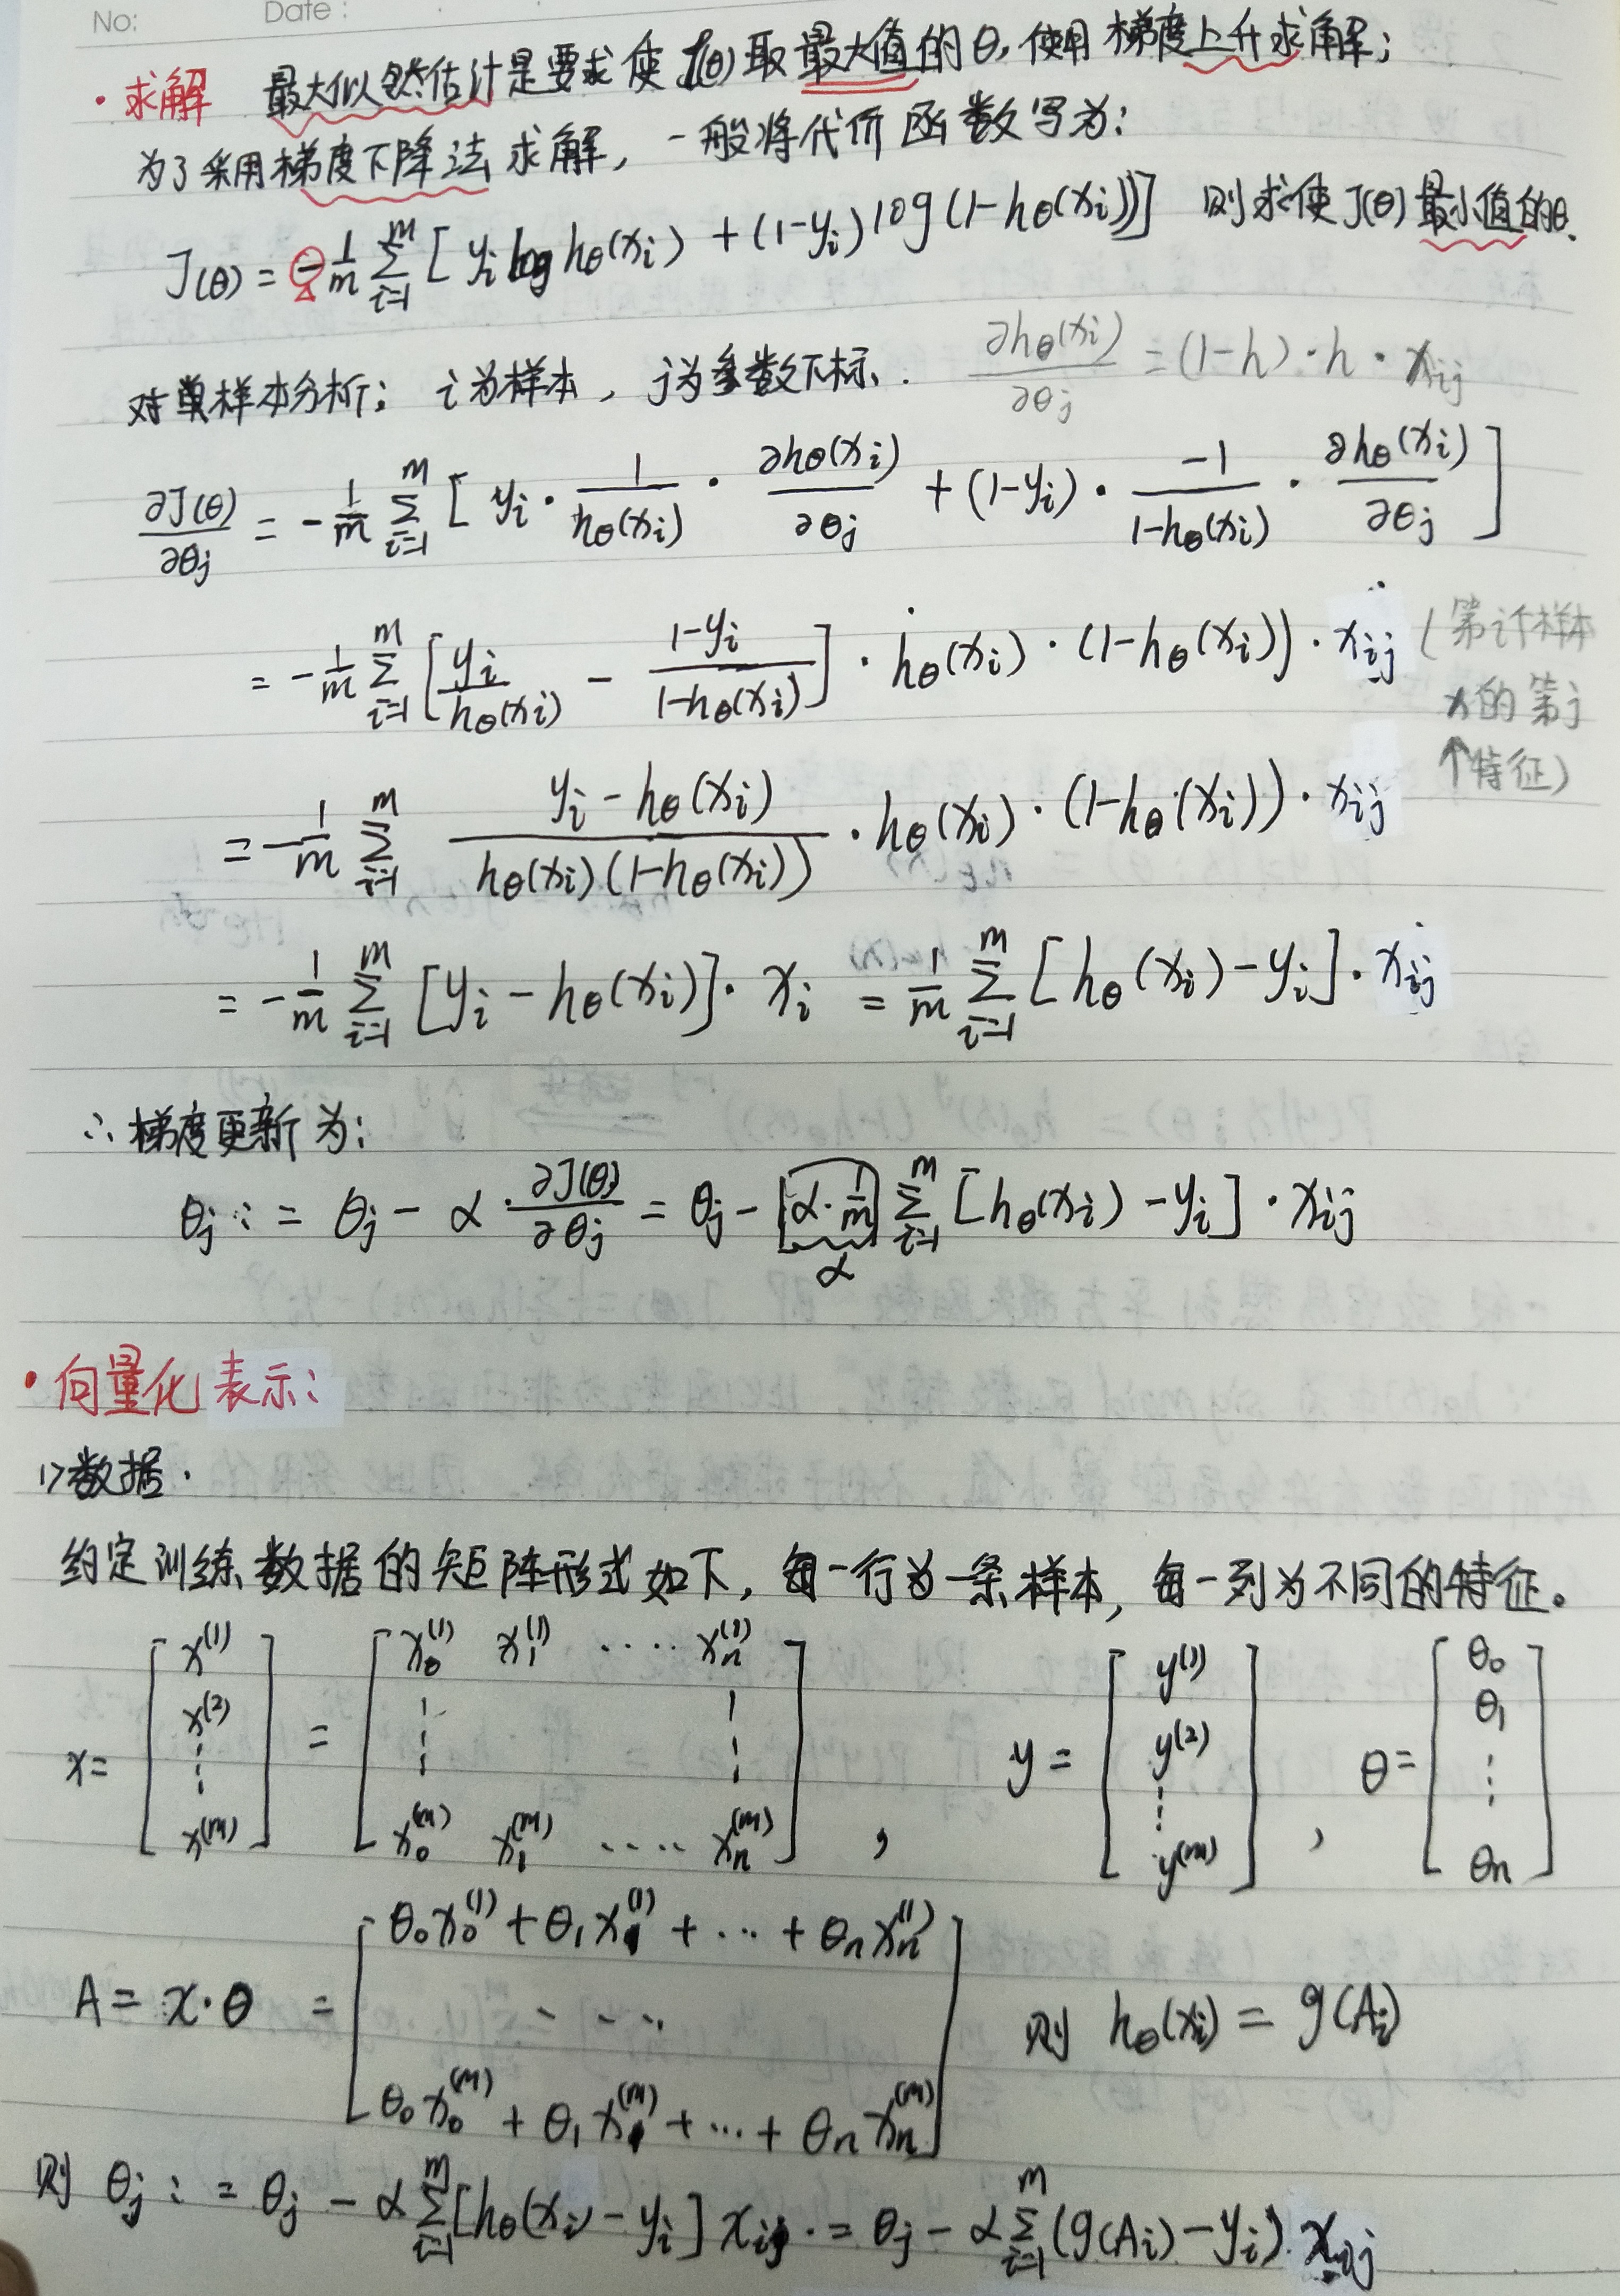 No: Date :
· 求解 最大似然估计是要求使 J(θ) 取最大值的θ, 使用梯度上升求解;
为了采用梯度下降法求解, 一般将代价函数写为:
J(θ) = -1/m Σ_{i=1}^{m} [ y_i log h_θ(x_i) + (1-y_i) log (1-h_θ(x_i)) ] 则求使 J(θ) 最小值的θ.
对单样本分析: i为样本, j为参数下标. ∂h_θ(x_i)/∂θ_j = (1-h)·h·x_ij
∂J(θ)/∂θ_j = -1/m Σ_{i=1}^{m} [ y_i · 1/h_θ(x_i) · ∂h_θ(x_i)/∂θ_j + (1-y_i) · -1/(1-h_θ(x_i)) · ∂h_θ(x_i)/∂θ_j ]
= -1/m Σ_{i=1}^{m} [ y_i/h_θ(x_i) - (1-y_i)/(1-h_θ(x_i)) ] · h_θ(x_i) · (1-h_θ(x_i)) · x_ij (第i个样本
x的第j
个特征)
= -1/m Σ_{i=1}^{m} (y_i - h_θ(x_i))/(h_θ(x_i)(1-h_θ(x_i))) · h_θ(x_i) · (1-h_θ(x_i)) · x_ij
= -1/m Σ_{i=1}^{m} [y_i - h_θ(x_i)] · x_i = 1/m Σ_{i=1}^{m} [h_θ(x_i) - y_i] · x_ij
∴ 梯度更新为:
θ_j := θ_j - α · ∂J(θ)/∂θ_j = θ_j - [α · 1/m] Σ_{i=1}^{m} [h_θ(x_i) - y_i] · x_ij
α
· 向量化表示:
1>数据.
约定训练数据的矩阵形式如下, 每一行为一条样本, 每一列为不同的特征。
x = [ x^(1) x^(2) ⋮ x^(m) ] = [ x_0^(1) x_1^(1) ···· x_n^(1) ⋮ ⋮ x_0^(m) x_1^(m) ···· x_n^(m) ] , y = [ y^(1) y^(2) ⋮ y^(m) ] , θ = [ θ_0 θ_1 ⋮ θ_n ]
A = x·θ = [ θ_0 x_0^(1) + θ_1 x_1^(1) + ··· + θ_n x_n^(1) ····· θ_0 x_0^(m) + θ_1 x_1^(m) + ··· + θ_n x_n^(m) ] 则 h_θ(x_i) = g(A_i)
则 θ_j := θ_j - α Σ_{i=1}^{m} [h_θ(x_i) - y_i] x_ij = θ_j - α Σ_{i=1}^{m} (g(A_i) - y_i) · x_ij